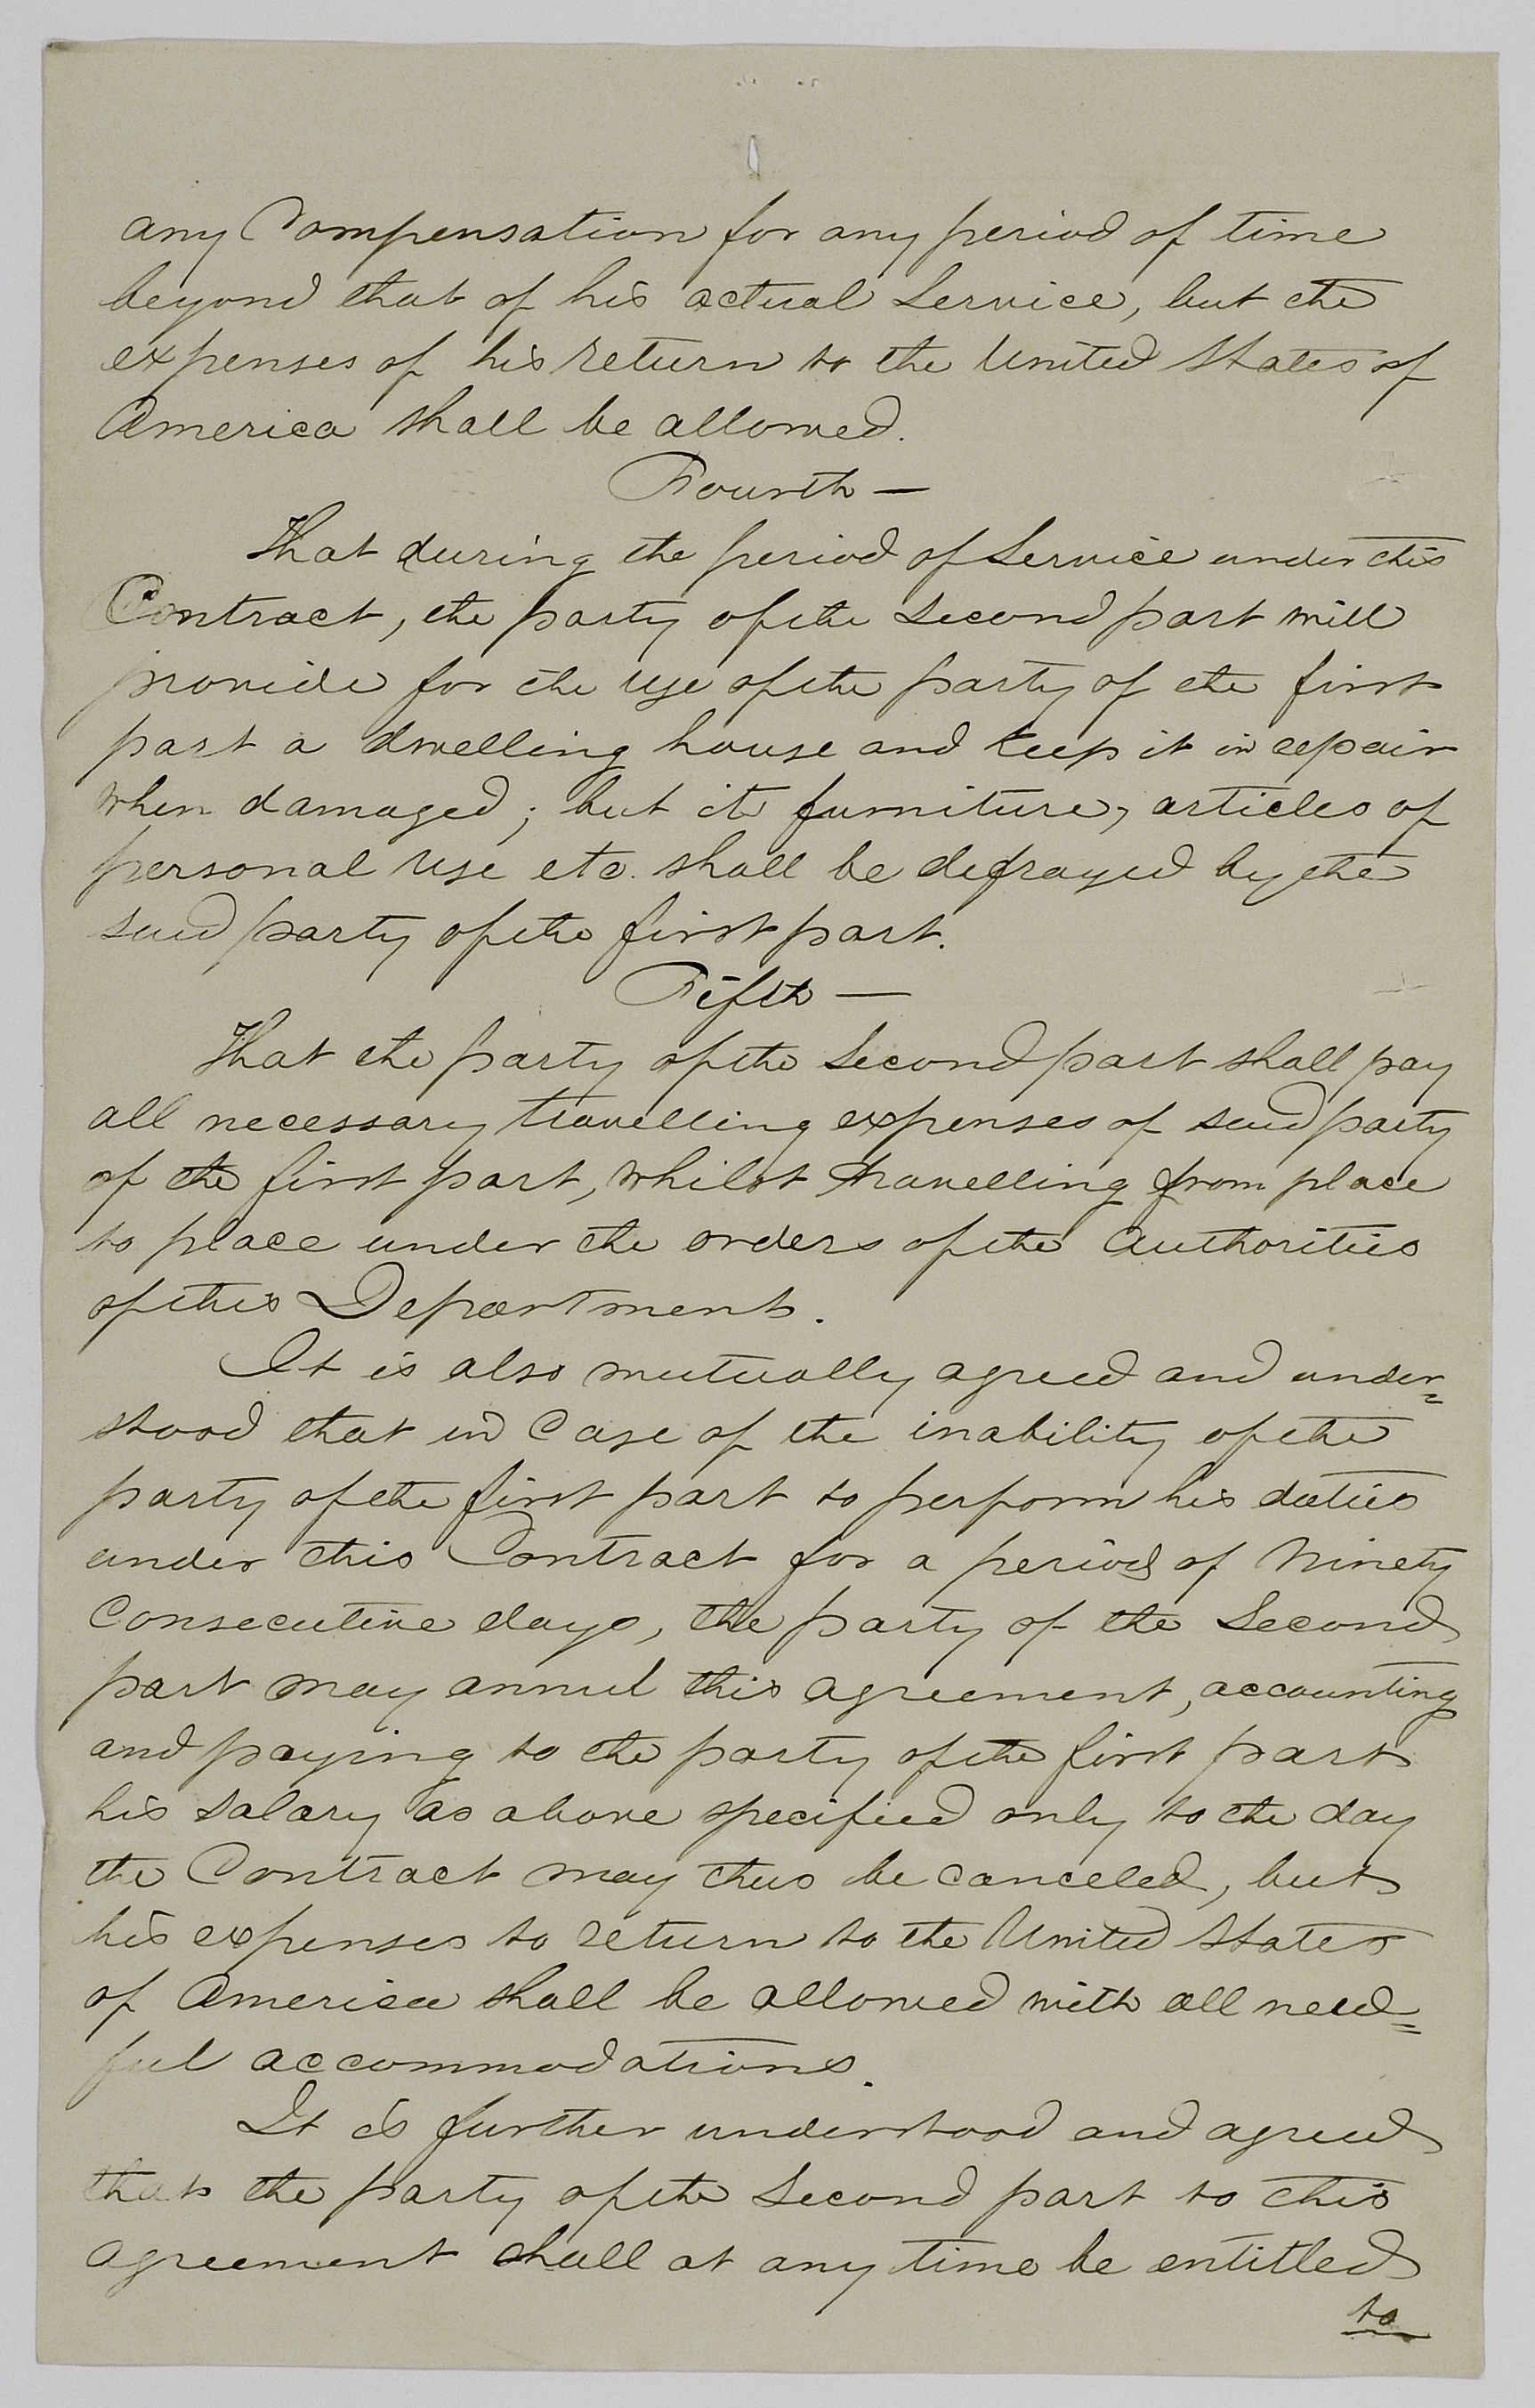 any Compensation for any period of time
beyond that of his actual Service, but the
expenses of his return to the United States of
America shall be allowed.
Fourth —
That during the period of Service under this
Contract, the party of the Second part will
provide for the use of the party of the first
part a dwelling house and keep it in repair
when damaged; but its furniture, articles of
personal use etc. shall be defrayed by the
said party of the first part.
Fifth —
That the party of the Second part shall pay
all necessary travelling expenses of said party
of the first part, whilst travelling from place
to place under the orders of the authorities
of this Department.
It is also mutually agreed and under=
stood that in Case of the inability of the
party of the first part to perform his duties
under this Contract for a period of Ninety
Consecutive days, the party of the Second
part may annul this agreement, accounting
and paying to the party of the first part
his salary as above specified only to the day
the Contract may thus be canceled, but
his expenses to return to the United States
of America shall be allowed with all need=
ful accommodations.
It is further understood and agreed
that the party of the Second part to this
agreement shall at any time be entitled
to